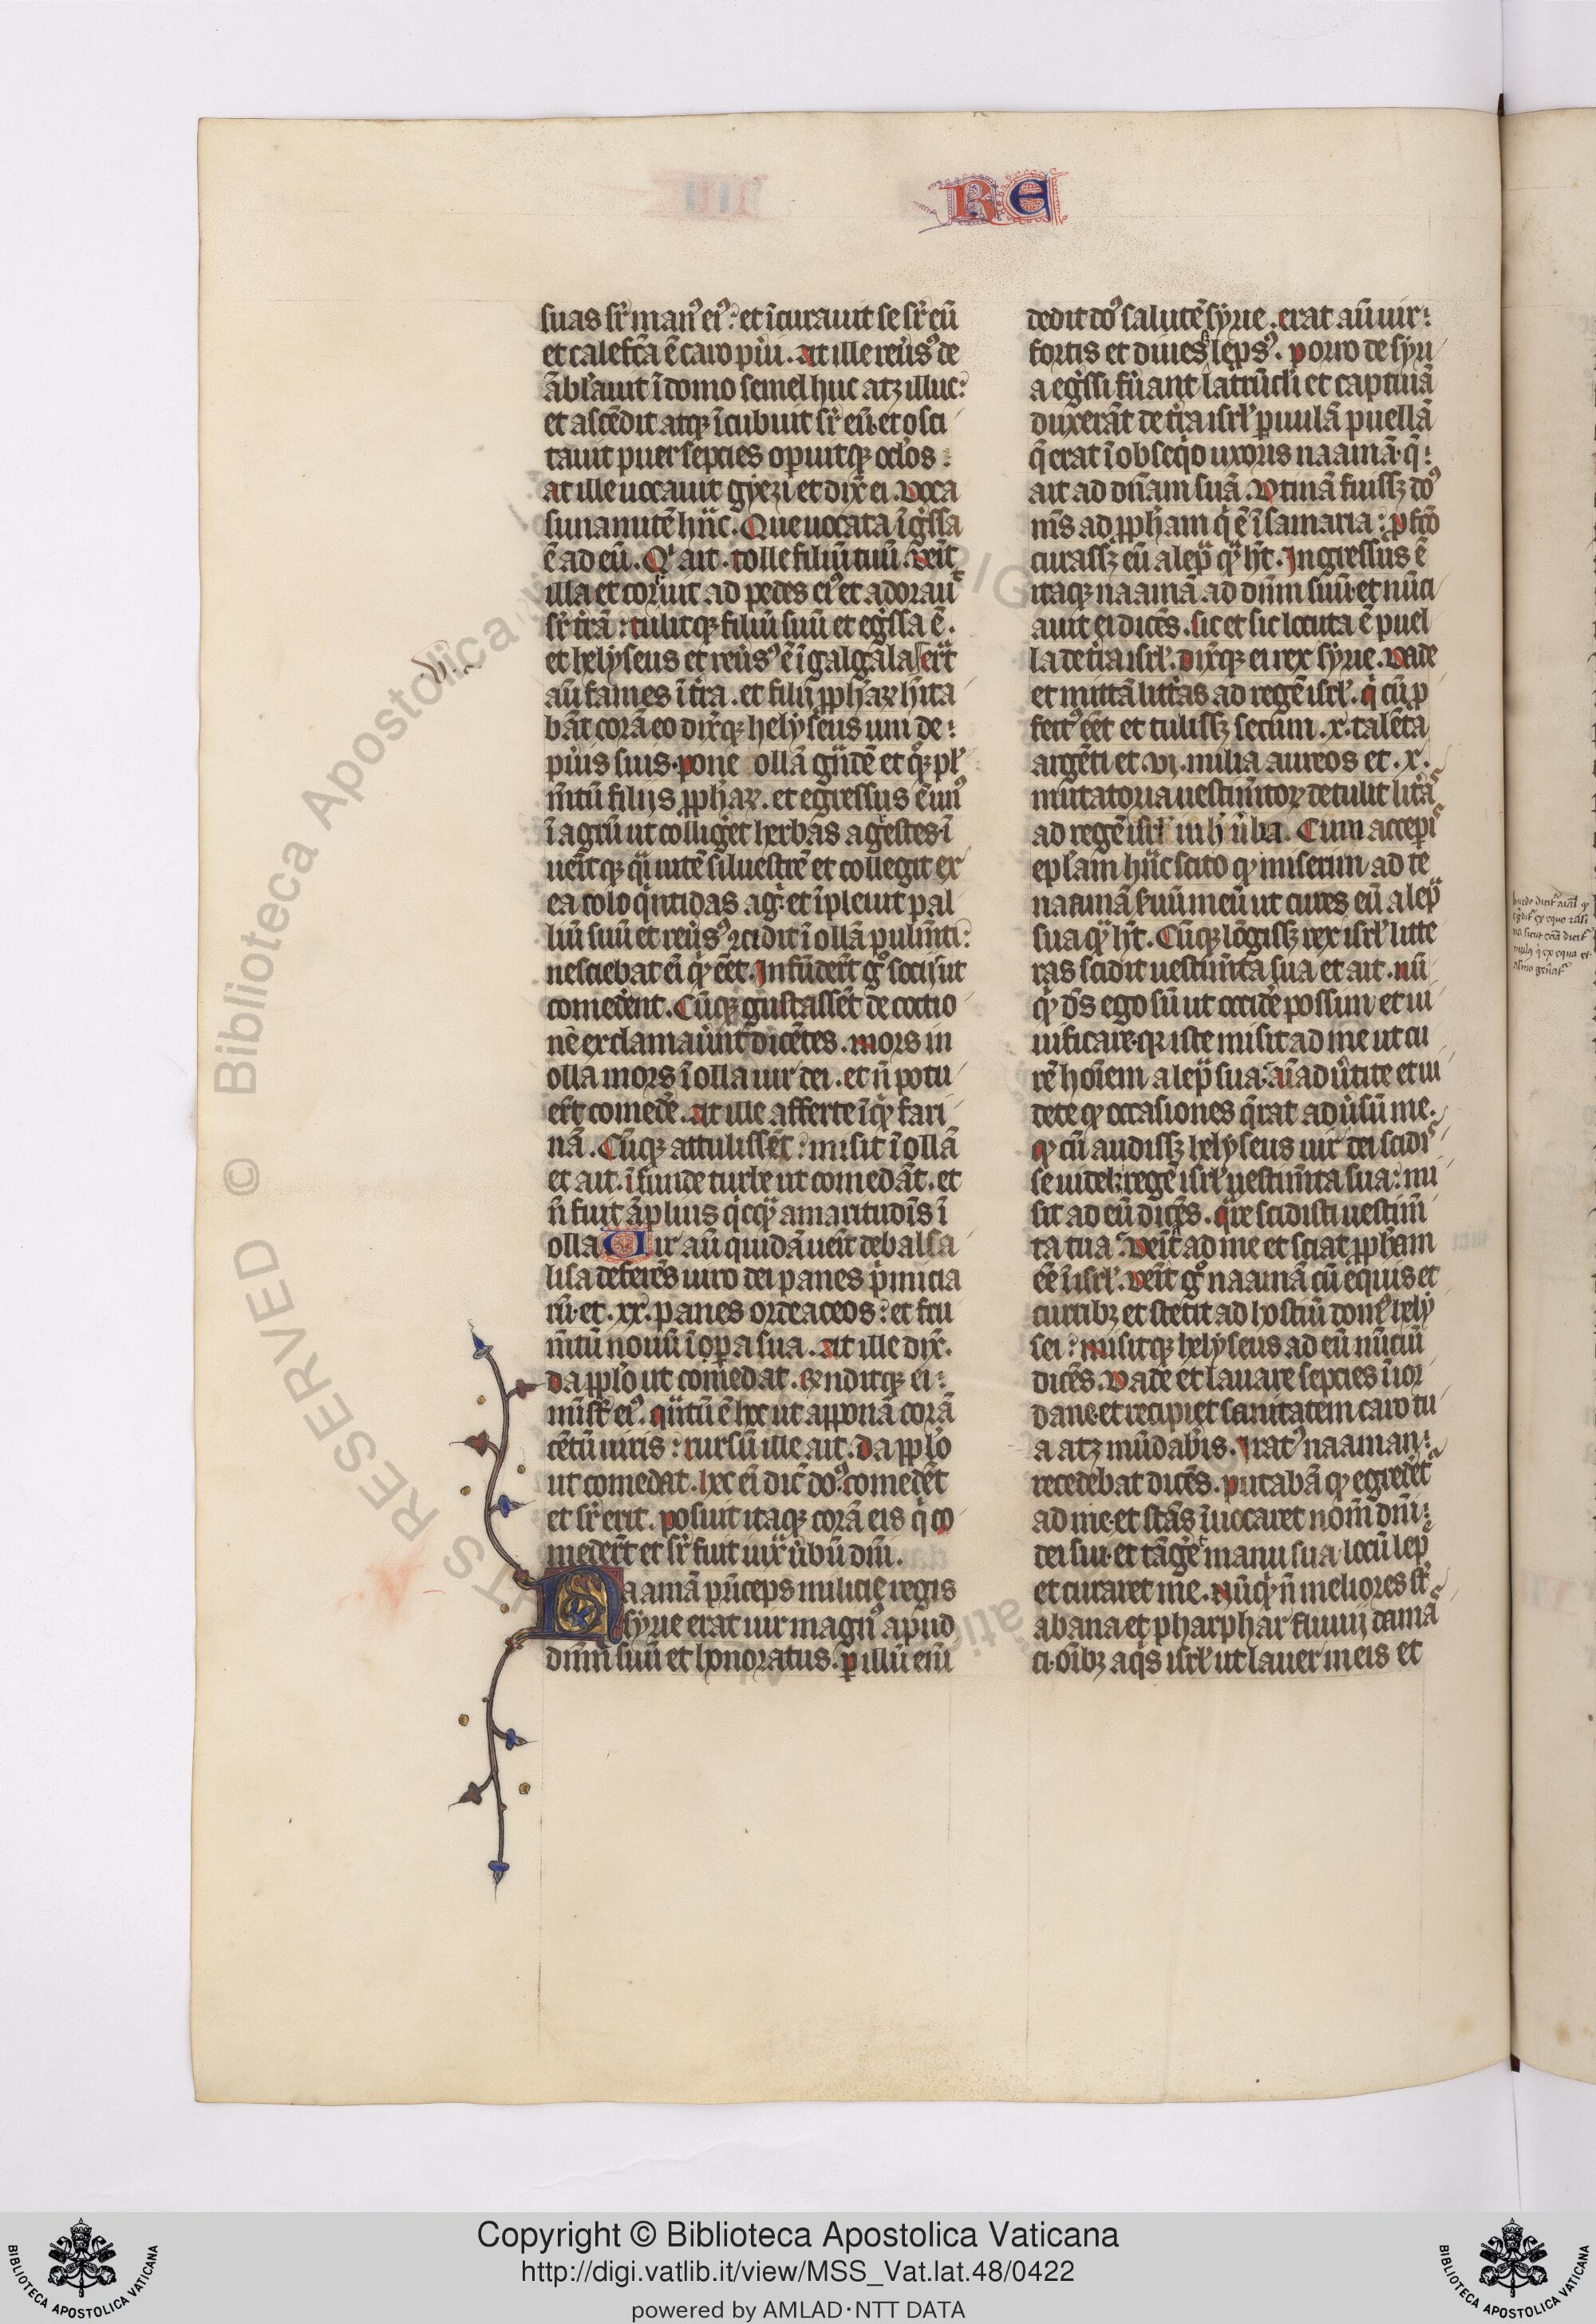 RE
suas sr̄ man᷒ ei᷒: et ĩcurauit se sr̄ eū
et calefc̄a ē caro pūi. At ille reūs᷒ de
ābl̓auit ĩ domo semel huc atz illuc:
et ascēdit atqz ĩcubuit sr̄ eū. et osci
tauit puer sepcies op̱uitqz oclo̓s:
at ille uocauit gyezi et dix̄ ei. Voca
sunamitē hāc. Que uocata ĩgssa
ē ad eū. Qⁱ ait. tolle filiū tuū. Veīt
illa et corruit ad pedes ei᷒ et adorauᷓ
sr̄ tr̄ā: tulitqz filiū suū et egssa ē.
et helyseus et reūs᷒ ē ĩ galgala Erat
aū fames ĩ tr̄a. et filij pph̄aꝝ hīta
bāt corā eo dixitqz helyseus uni de:
pūis suis. pone ollā gͣndē et qͦqz pl̓
m̄tū filijs pph̄aꝝ. et egressus ē un᷒
ĩ agrū ut collig̓et herbas agrestes. ĩ
ueītqz qͣi uitē siluestrē et collegit ex
ea coloqⁱntidas agⁱ. et ĩpleuit pal
liū suū et reūs᷒ ꝯcidit ĩ ollā pulm̄ti:
nesciebat ei qͥ eēt. Infuder̄t gͦ socijs ut
comeder̄ent. Cūqz gustassēt de coctio
nē exclamauer̄t dicētes. mors in
olla mors ĩ olla uir dei. et n̄ potu
ert̄ comedē. At ille afferte ĩqͥt fari
nā. Cūqz attulissēt: misit ĩ ollā
et ait. ĩfunde turbe ut comedāt. et
n̄ fuit āplius qⁱcqͣ amaritudīs ĩ
olla Vir aū quidā ueīt de balsa
lisa deferēs uiro dei panes pⁱmicia
rū. et .xx. panes ordeaceos: et fru
m̄tū nouū ĩ pera sua. At ille dix̄.
da pplo̓ ut comedat. Rn̄ditqz ei:
mīst̓ ei᷒. qͣntū ē hoc ut apponā corā
cētū uiris: rursū ille ait. Da pplo̓
ut comedat. hec ei dic̄ do᷒: comedēt
et sr̄ erit. posuit itaqz corā eis qⁱ co
meder̄t et sr̄ fuit iuxͣ ūbū dn̄i.
Naamā pⁱnceps milicie regis
syrie erat uir magn᷒ apud
dn̄m suū et honoratus. p̱ illū eīū
dedit do᷒ salutē syrie. erat aū uir:
fortis et diues s̓ lepͦs᷒. Porro de syri
a egssi fūant latrūcl̓i et captiuā
duxerāt de tr̄a isrl̓ p̱uulā puellā
q̄ erat ĩ obseqⁱo uxoris naamā. q̄:
ait ad dn̄am suā. Vtinā fuissz do᷒
m̄s ad pph̄am qⁱ ē ĩ samaria: p̱fcō
curassz eū a lepͣ qͣ h̄t. Ingressus ē
itaqz naamā ad dn̄m suū. et nūci
auit ei dicēs. Sic et sic locuta ē puel
la de tr̄a isrl̓. Dixitqz ei rex syrie. Vade
et mittā litt̓as ad regē isrl̓. qⁱ cū p
fect᷒ eēt et tulissz secum .x. talēta
argēti et .vi. milia aureos et .x.
mutatoria uestim̄toꝝ detulit litt̓as
ad regē isrl̓ in h̄ ūba. Cum accep̱is
epl̓am hāc scito qͥ miserim ad te
naamā seruū meū ut cures eū a lepͣ
sua qͣ h̄t. Cūqz legissz rex isrl̓ litte
ras scidit uestim̄ta sua et ait. nū
qͥ ds̄ ego sū ut occidē possim et ui
uificare. qꝛ iste misit ad me ut cu
rē hoīem a lepͣ sua. aīaduertite et ui
dete qͥ occasiones qͣrat aduersū me.
qͥ cū audissz helyseus uir dei scidis
se uidelz regē isrl̓ uestim̄ta sua: mi
sit ad eū dicēs. qͣre scidisti uestim̄
ta tua. Veīt ad me et sciat pph̄am
eē ĩ isrl̓. Veīt gͦ naamā cū equis et
curribz et stetit ad hostiū dom᷒ hely
sei: Misitqz helyseus ad eū nūciū
dicēs. Vade et lauare sepcies ĩ ior
dane. et recipiet sanitatem caro tu
a atz mūdab̓is. Irat᷒ naaman:
recedebat dicēs. putabā qͥ egredēt̓
ad me. et stās ĩuocaret nom̄ dn̄i:
dei sui. et tāgēt manu sua locū lepͤ
et curaret me. Nūqͥd n̄ meliores st̄
abana et pharphar fluuij damas
ci. oībz aqⁱs isrl̓ ut lauer in eis et
Copyright © Biblioteca Apostolica Vaticana
http://digi.vatlib.it/view/MSS_Vat.lat.48/0422
powered by AMLAD·NTT DATA
BIBLIOTECA APOSTOLICA VATICANA
BIBLIOTECA APOSTOLICA VATICANA